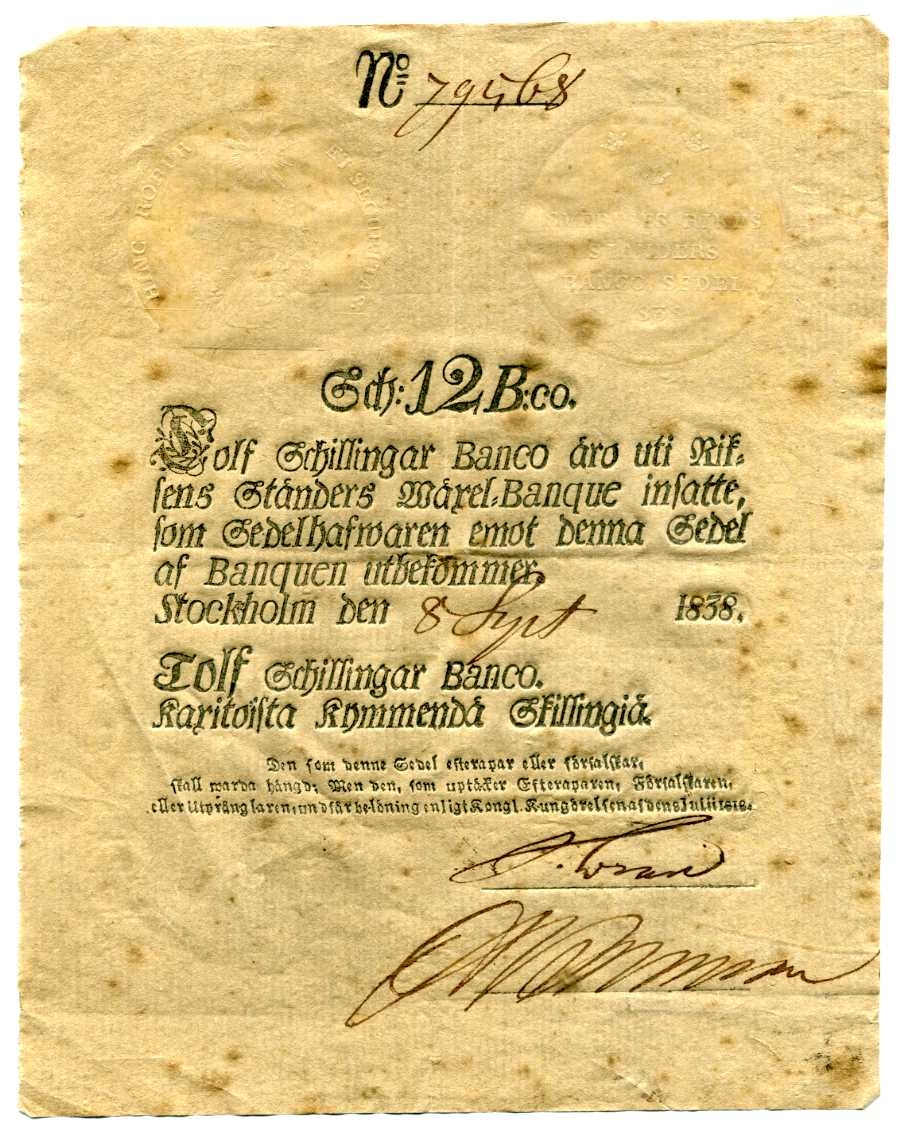 No 79568
BANC ROBUR ET SECURITAS
RIKSENS STÄNDERS BANCO SEDEL
Sch: 12 B:co.
Tolf Schillingar Banco äro uti Rik=
sens Ständers Wäxel=Banque insatte,
som Sedelhafwaren emot denna Sedel
af Banquen utbekommer.
Stockholm den 8 Sept 1838.
Tolf Schillingar Banco.
Kaxitoista Kymmendä Skillingiä.
Den som denne Sedel efterapar eller förfalskar,
skall warda hängd; Men den, som uptäcker Efteraparen, Förfalskaren,
eller Utprånglaren, undfår belöning enligt Kongl. Kungörelsen af den 6 Julii 1818.